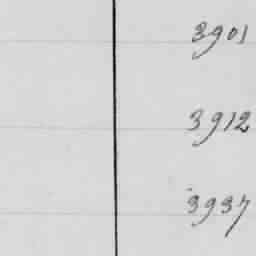 3901
3912
3937